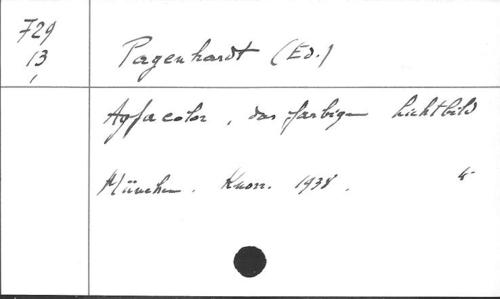 729
13
Pagenhardt (Ed.)
Agfacolor, das farbige Lichtbild
München. Knorr. 1938.